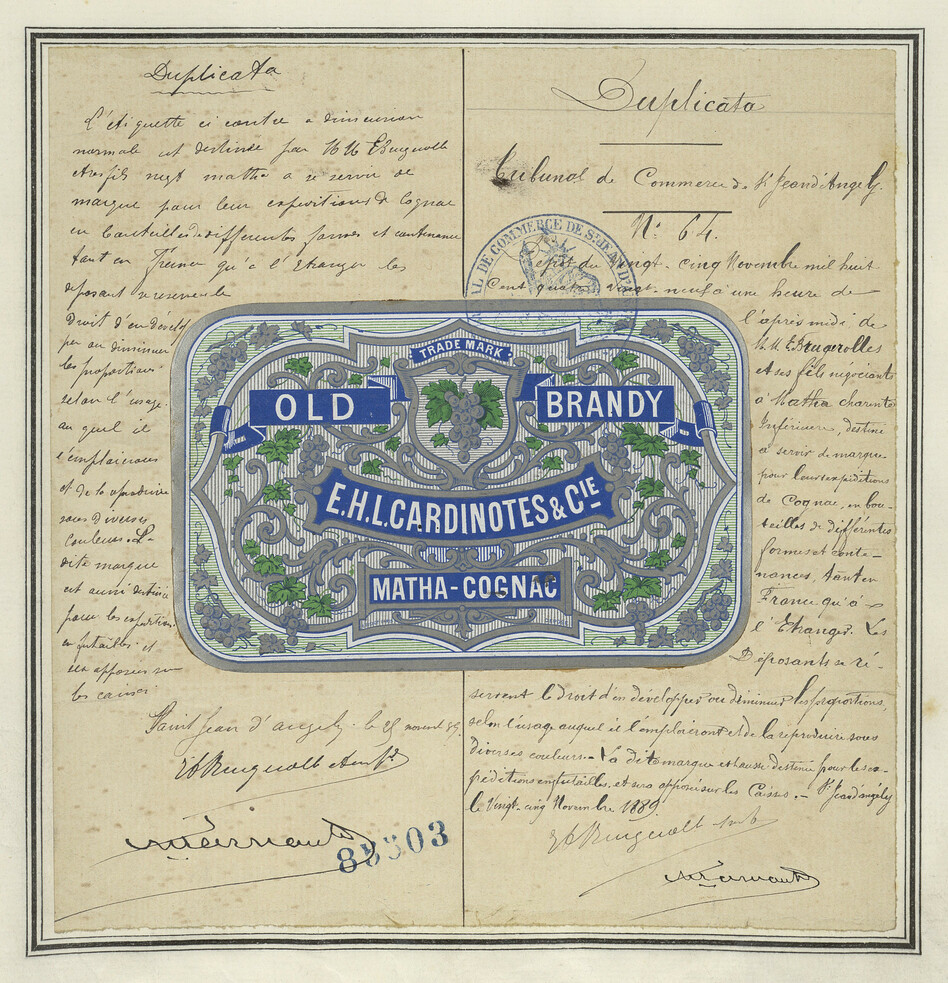 Duplicata
L'étiquette ci contre a dimension
normale est destinée par MM E Brugerolle
et ses fils negt matha a se servir de
marque pour leur expeditions de Cognac
en bouteilles de differentes formes et contenance
tant en France qu'a l'Etranger les
deposant se reserve le
Droit d'en dévelop
per ou diminuer
les proportions
selon l'usage
au quel il
l'emploierons
et de la reproduire
sous Diverses
couleurs. La
dite marque
est aussi destinée
pour les expedition
en futailles et
sera apposée sur
les caisses.
Saint Jean d'angely le 25 novembre 89.
85303
Duplicata
Tribunal de Commerce de St Jean d'Angely.
No. 64.
TRIBUNAL DE COMMERCE DE ST JEAN D'
Dépôt du Vingt-cinq Novembre mil huit
Cent quatre vingt-neuf à une heure de
l'après midi de
MM E. Brugerolles
et ses fils negociants
à Matha charente
Inférieure, destiné
à servir de marque
pour leurs expéditions
de Cognac, en bou-
teilles de différentes
formes et conte-
nances, tant en
France qu'à
l'Etranger. Les
Déposants se ré-
servent le droit d'en développer ou diminuer les proportions,
selon l'usage auquel il l'emploiront et de la reproduire sous
diverses couleurs. - La dite marque est aussi destinée pour les ex-
péditions en futailles, et sera apposée sur les Caisses. - St Jean d'angély
le Vingt-cinq Novembre 1889.
TRADE MARK.
OLD BRANDY
E.H.L. CARDINOTES & CIE
MATHA-COGNAC